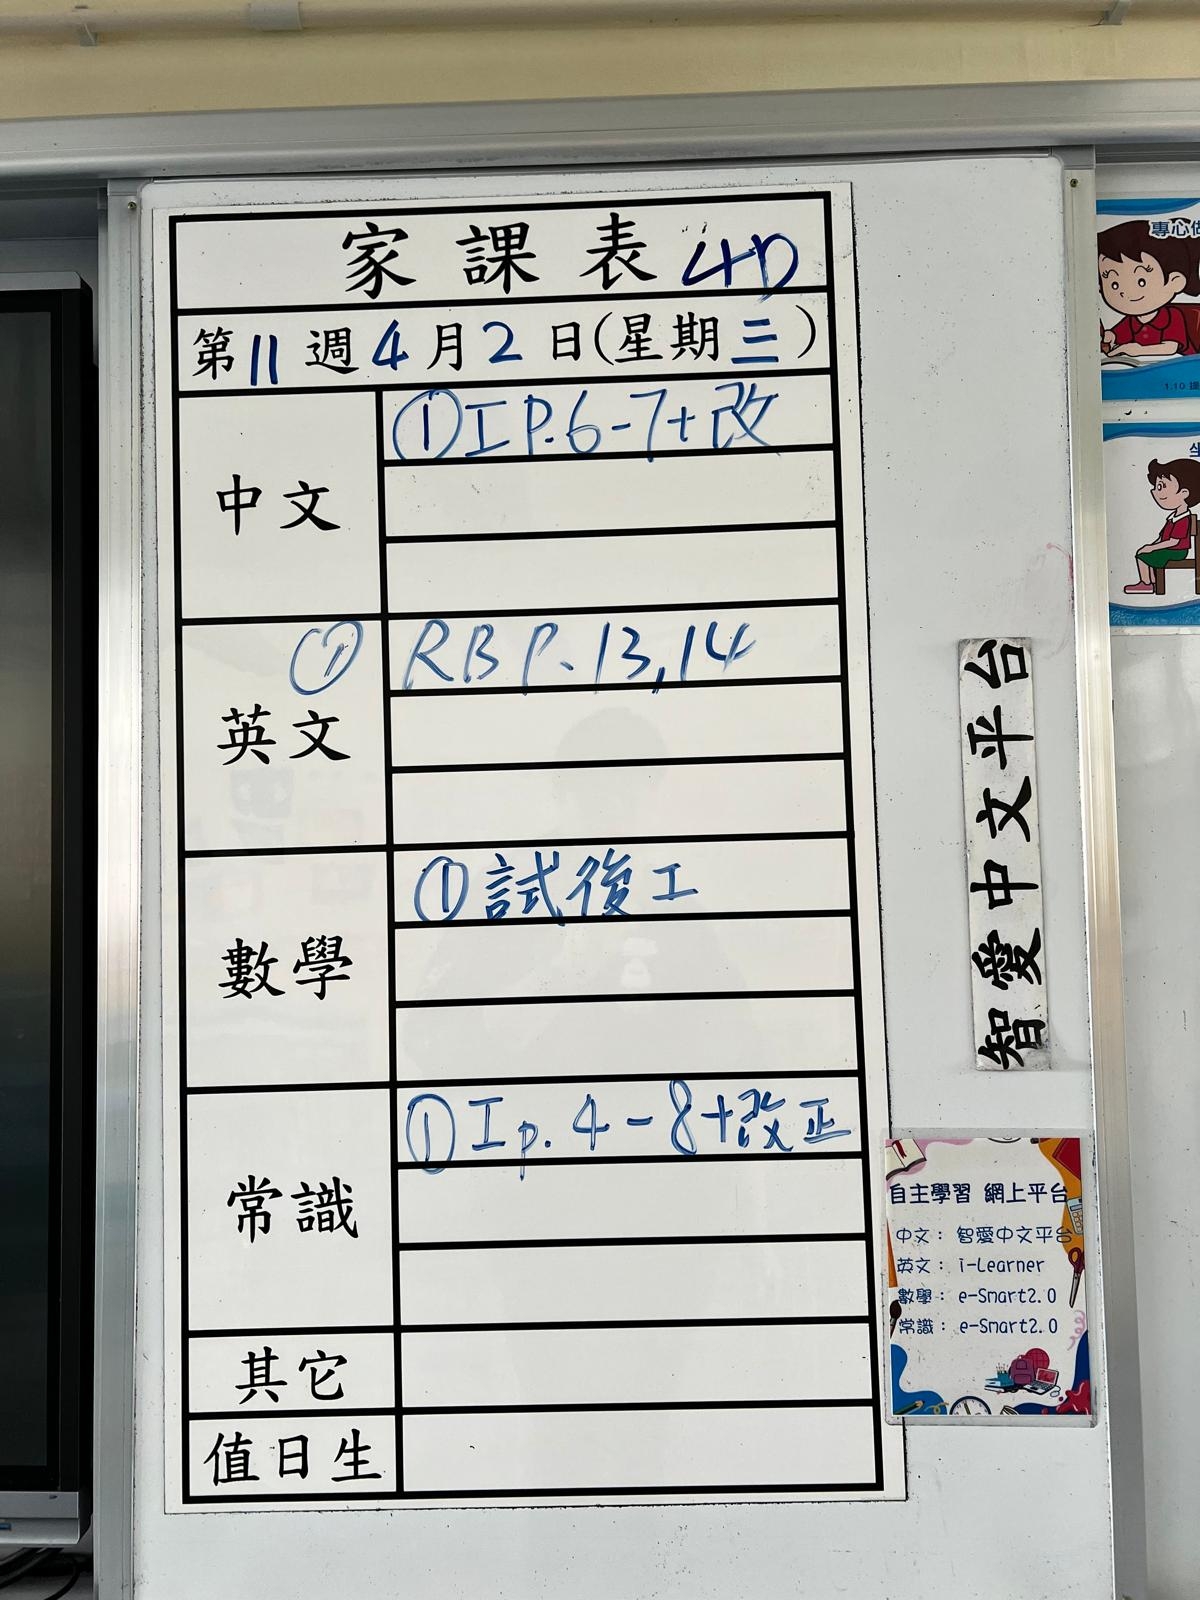 家課表 4D
第11週4月2日(星期三)
中文
①工P.6-7+改
英文
① RB P.13,14
數學
①試後工
常識
①工p.4-8+改正
其它
值日生
智愛中文平台
自主學習 網上平台
中文： 智愛中文平台
英文： i-Learner
數學： e-Smart2.0
常識： e-Smart2.0
專心
1.10
坐